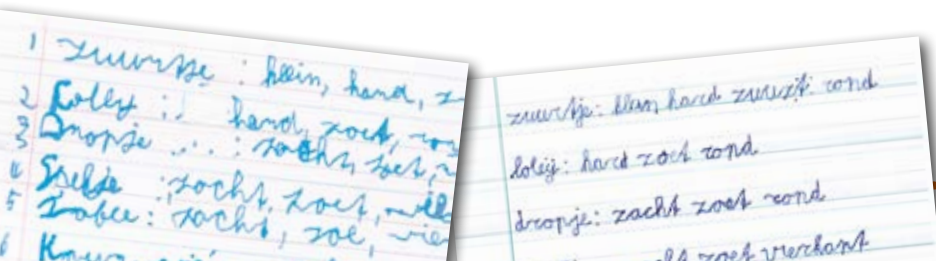 1 zuurtje : klein, hard, z
2 Lolly : hard, zoet, ron
3 Dropje : zacht, zoet, r
4 Spekje : zacht, zoet, vie
5 : zacht, zoe, vie
6
zuurtje: klein hard zuur rond
lolij: hard zoet rond
dropje: zacht zoet rond
zoet vierkant